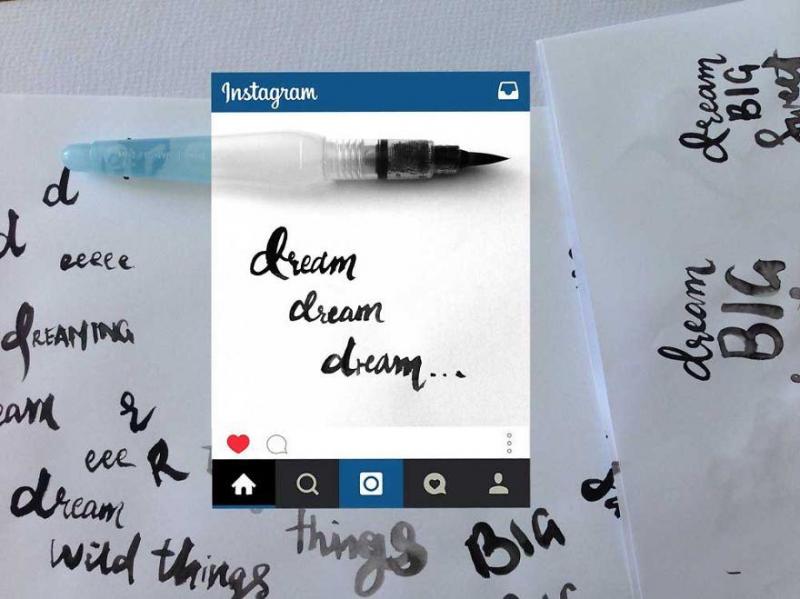 Instagram
dream
dream
dream...
d
d
eeeee
dREAMING
eam
eee R
dream
Wild things
things
BIG
dream
BIG
Sweet
dream
BIG